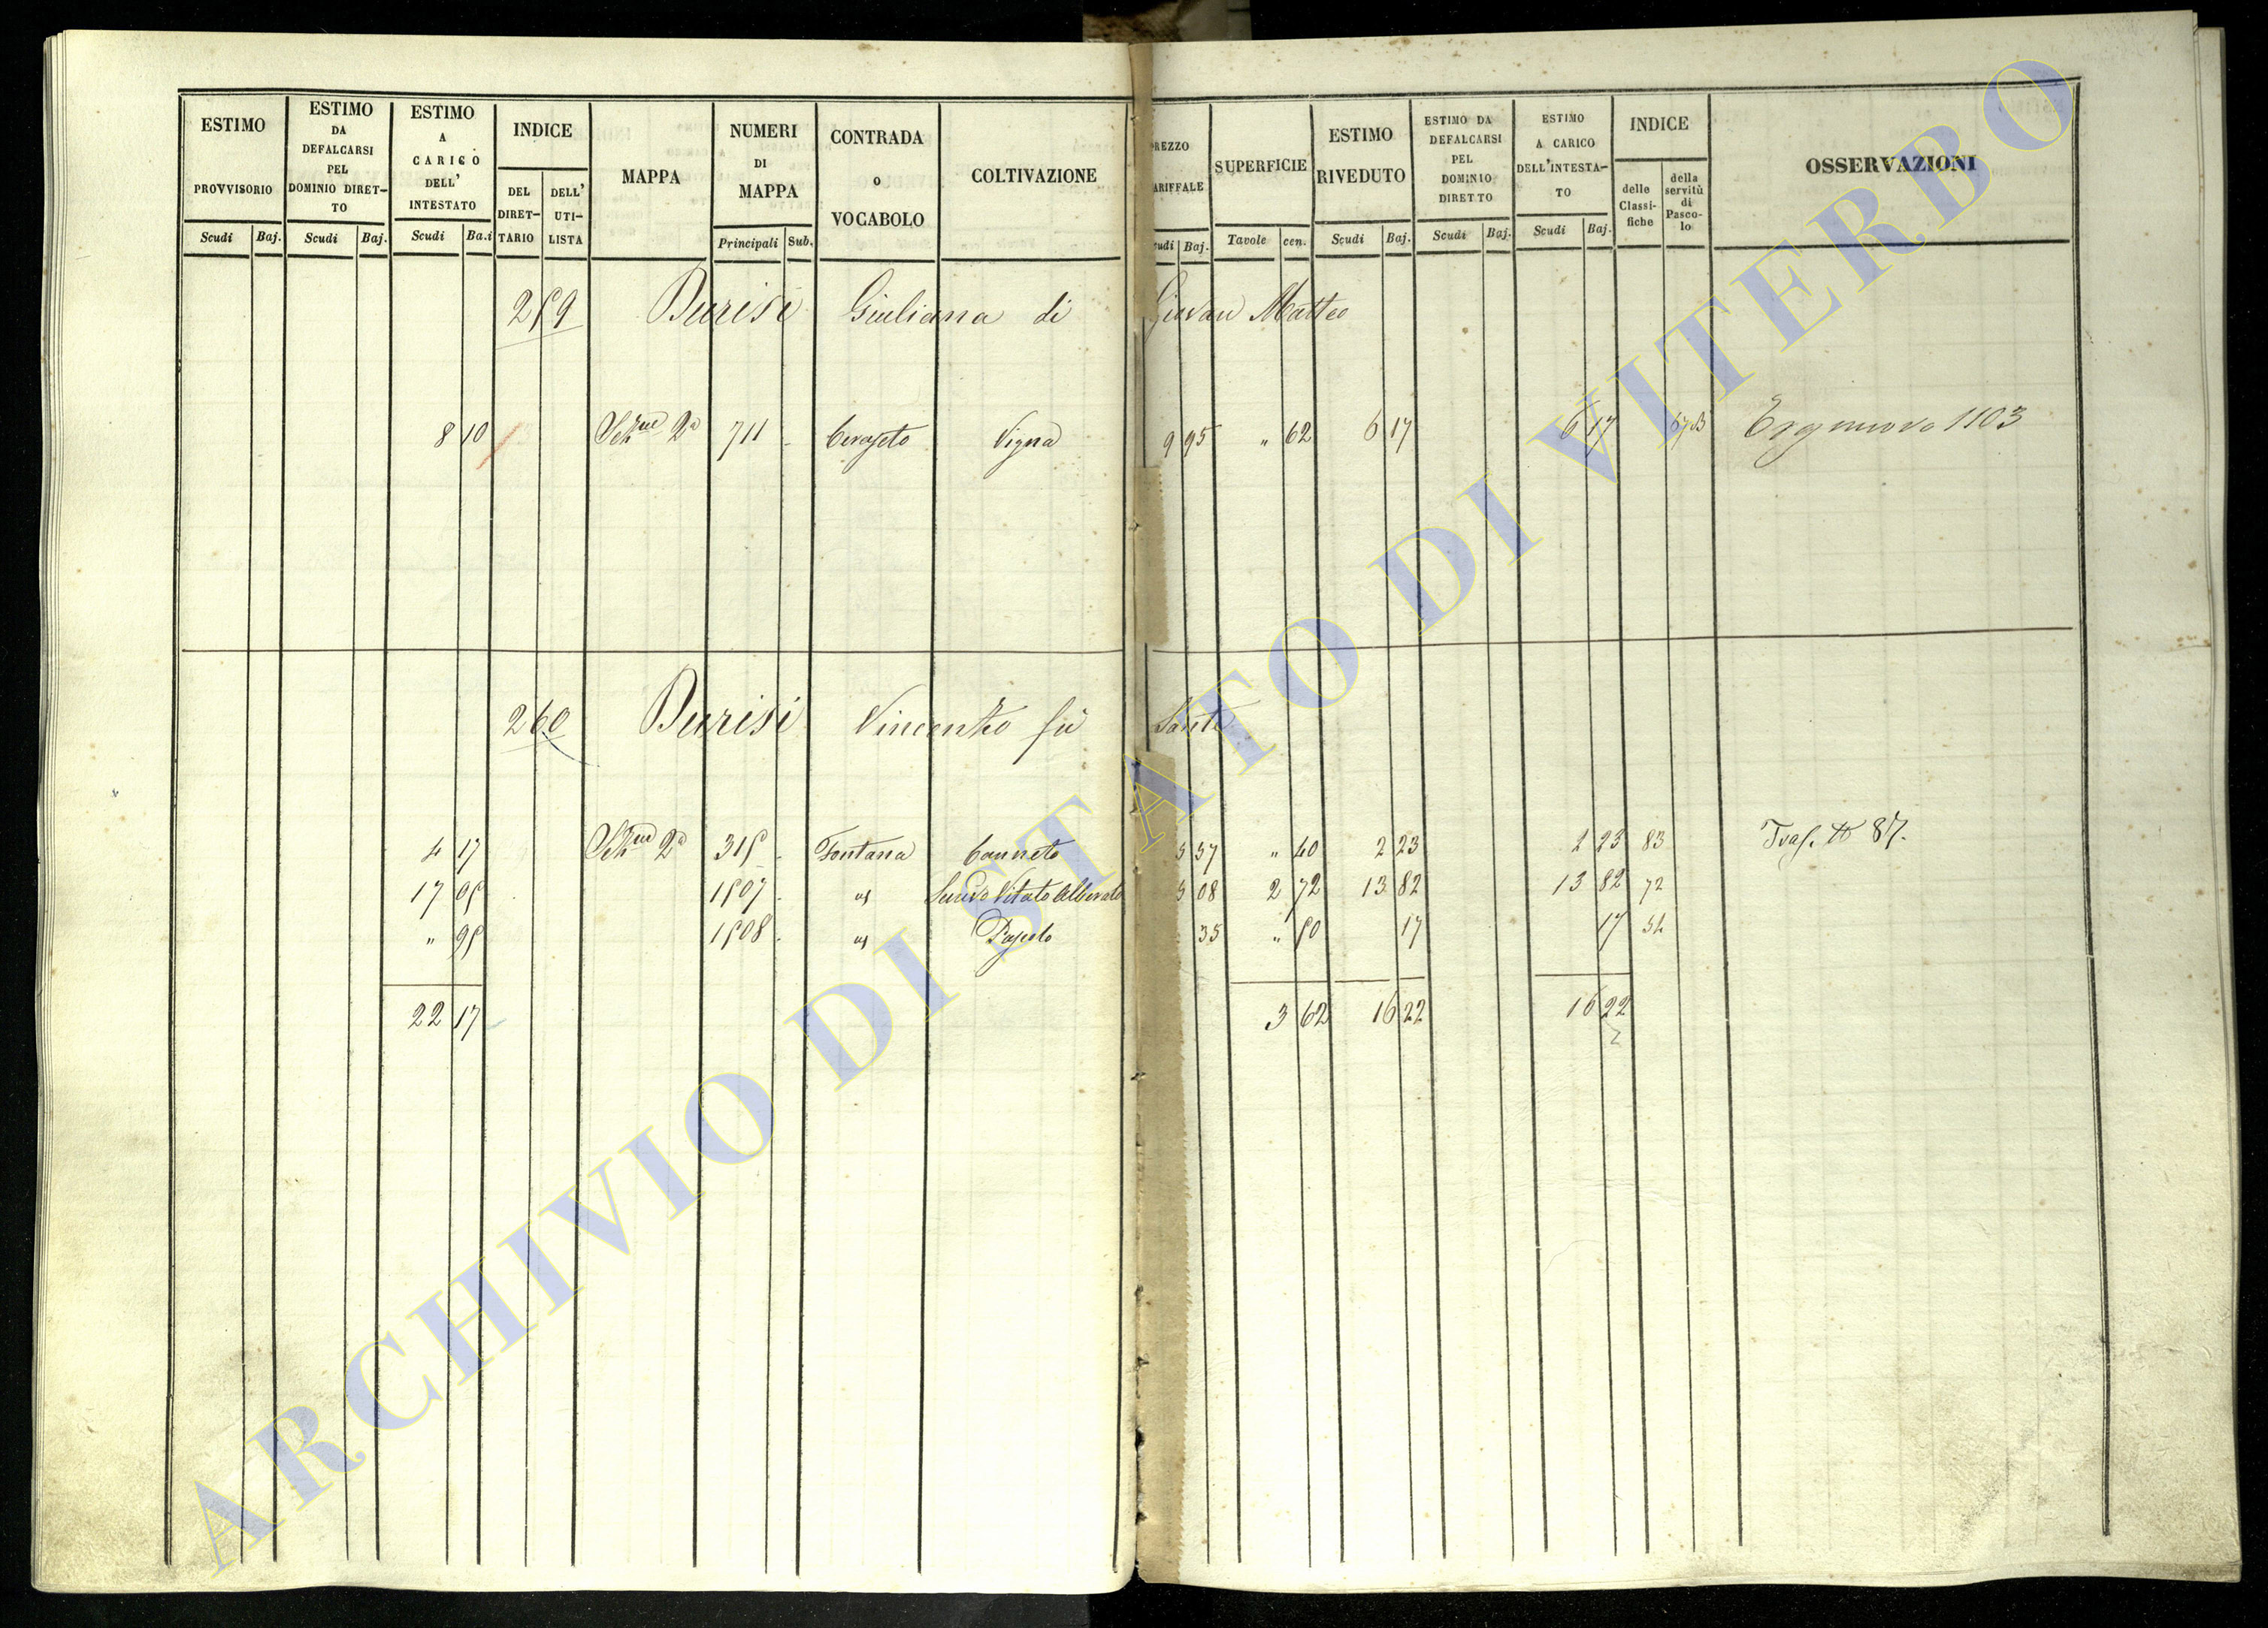 ESTIMO PROVVISORIO | ESTIMO DA DEFALCARSI PEL DOMINIO DIRET-TO | ESTIMO A CARICO DELL' INTESTATO | INDICE | MAPPA | NUMERI DI MAPPA | CONTRADA O VOCABOLO | COLTIVAZIONE | REZZO ARIFFALE | SUPERFICIE | ESTIMO RIVEDUTO | ESTIMO DA DEFALCARSI PEL DOMINIO DIRETTO | ESTIMO A CARICO DELL'INTESTA-TO | INDICE | OSSERVAZIONI
DEL DIRET-TARIO | DELL' UTI-LISTA | delle Classi-fiche | della servitù di Pasco-lo
Scudi | Baj. | Scudi | Baj. | Scudi | Ba.i | Principali | Sub. | udi | Baj. | Tavole | cen. | Scudi | Baj. | Scudi | Baj. | Scudi | Baj.
259 Burisi Giuliana di Giovan Matteo
8 10 2a 711 Ceraseto Vigna 9 95 " 62 6 17 6 17 1103
260 Burisi Vincenzo fù Sante
4 17 2a 315 Fontana Canneto 5 57 " 40 2 23 2 23 83 Tras. 87.
17 05 1507 Vitato Alberato 5 08 2 72 13 82 13 82 72
" 95 1508 Pascolo 35 " 50 17 17 54
22 17 3 62 16 22 16 22
ARCHIVIO DI STATO DI VITERBO